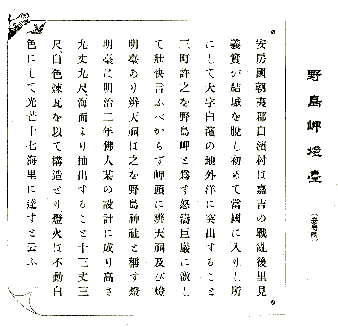 野島岬燈臺
(安房國)
安房國朝夷郡白濱村は嘉吉の戰亂後里見
義實が結城を脱し初めて當國に入りし所
にして大字白濱の地外洋に突出すること
三町許之を野島岬と爲す怒濤巨巖に激し
て壯快言ふべからず岬頭に辨天祠及び燈
明臺あり辨天祠は之を野島神社と稱す燈
明臺は明治二年佛人某の設計に成り高さ
九丈九尺海面より抽出すること十三丈三
尺白色煉瓦を以て構造せり燈火は不動白
色にして光芒十七海里に達すと云ふ